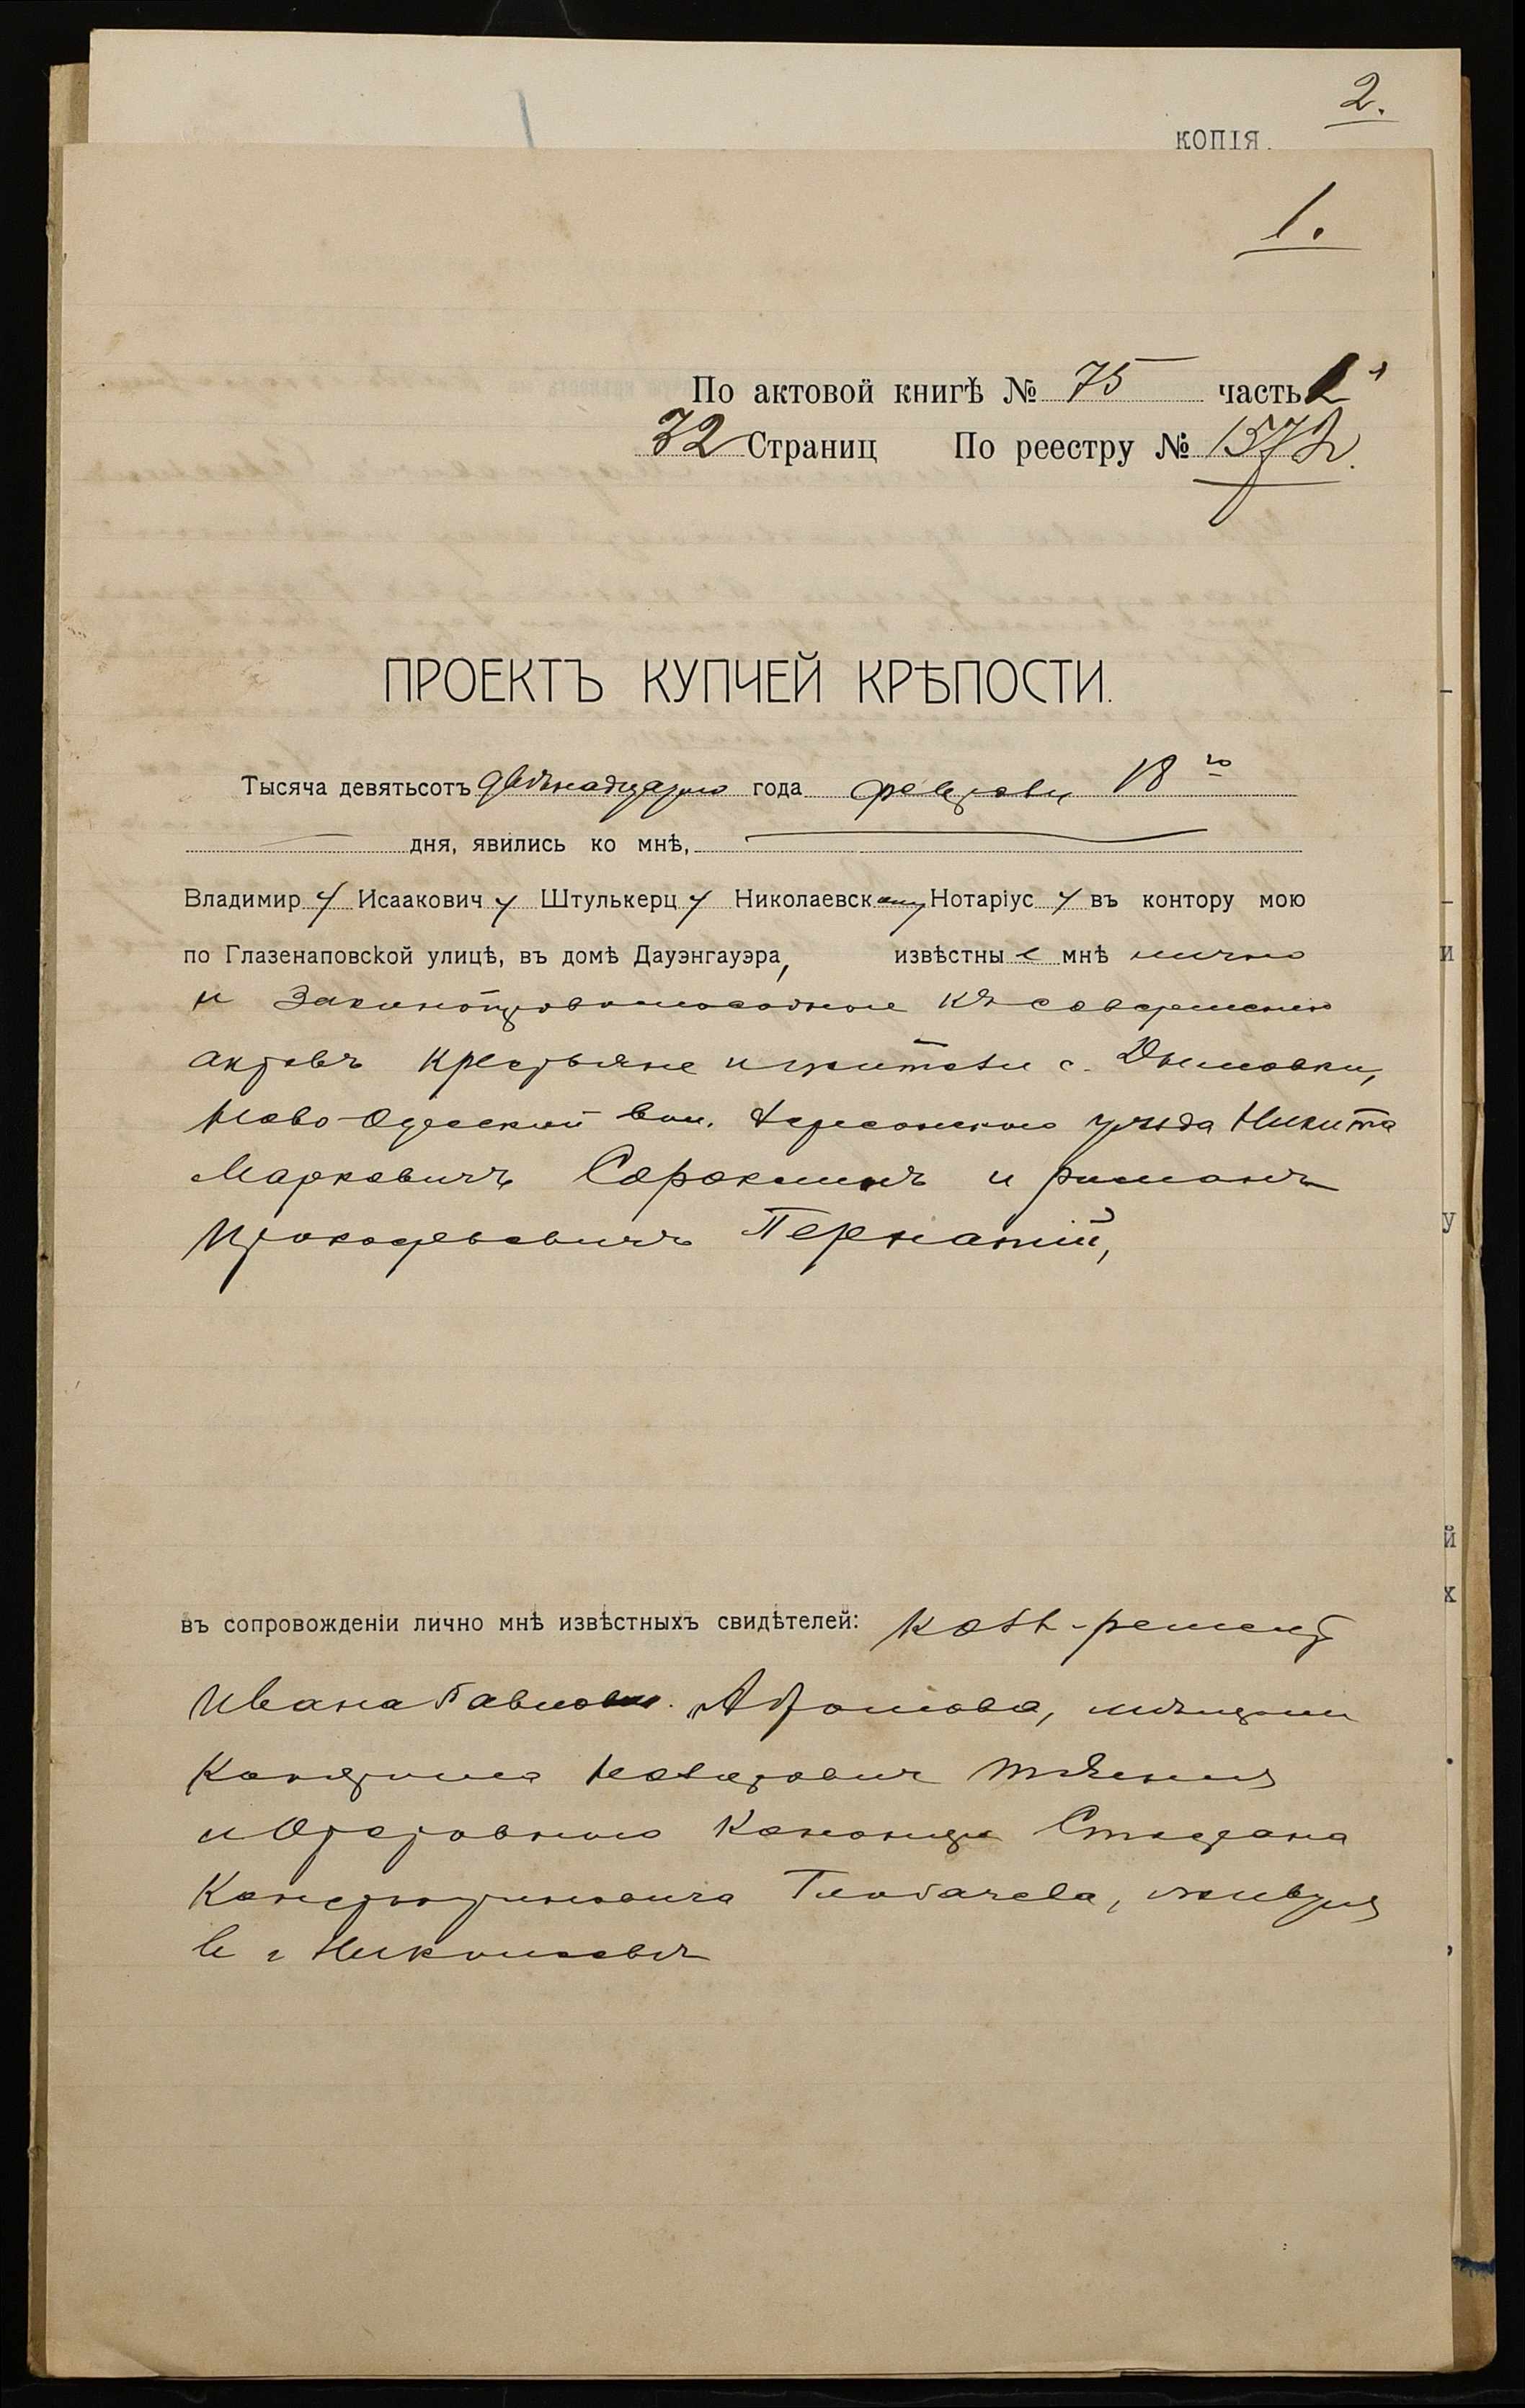 2.
КОПІЯ.
1.
По актовой книгѣ № 75 часть 1
32 Страниц По реестру № 1572.
ПРОЕКТЪ КУПЧЕЙ КРѢПОСТИ.
Тысяча девятьсотъ двѣнадцатаго года февраля 18 го
дня, явились ко мнѣ,
Владимиру Исааковичу Штулькерцу Николаевскому Нотаріусу въ контору мою
по Глазенаповской улицѣ, въ домѣ Дауэнгауэра, извѣстные мнѣ лично
и законоправоспособные къ совершенію
актовъ крестьяне и жители с. Дымовки,
Ново-Одесской вол. Херсонскаго уѣзда Никита
Марковичъ Сорокинъ и Романъ
Прокофьевичъ Пернатій,
въ сопровожденіи лично мнѣ извѣстныхъ свидѣтелей: кол. регист
Ивана Павлов. мѣщан
и Отставного Степана
Константиновича Глобачева, живущ
в г Николаевѣ
-
-
и
у
й
х